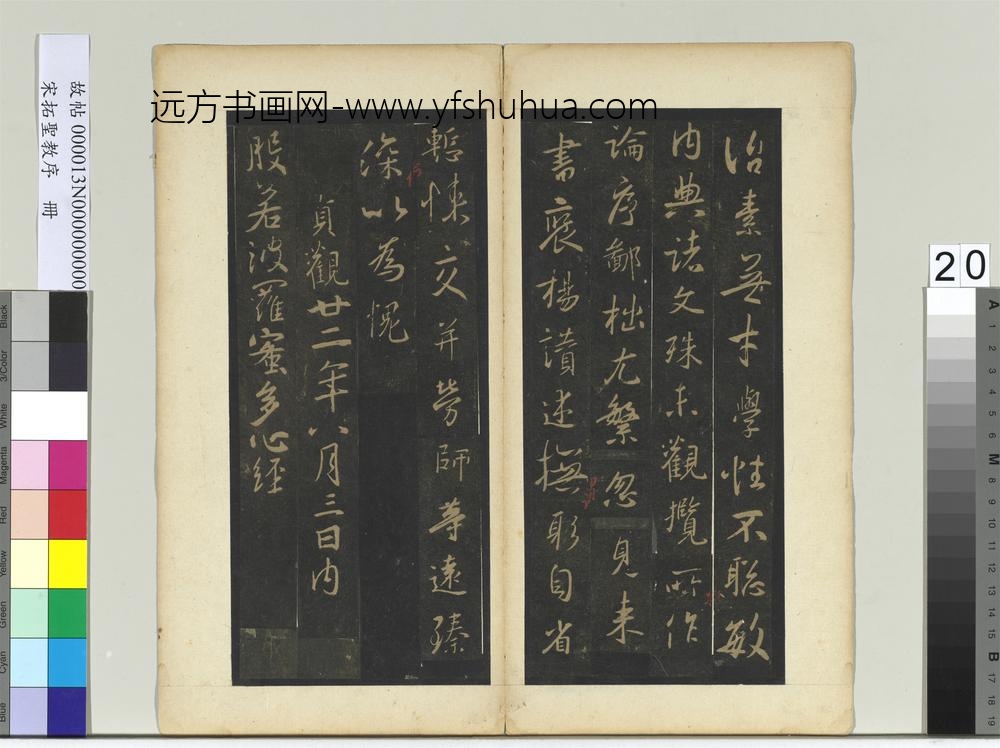 远方书画网-www.yfshuhua.com
故帖 000013N000000000
宋拓聖教序 冊
20
治素無才學性不聡敏
内典諸文殊未觀攬所作
論序鄙拙尤繁忽見来
書褒揚讃述撫躬自省
慙悚交并勞師等遠臻
深以為愧
貞觀廿二年八月三日内
般若波羅蜜多心経
Black
3/Color
White
Magenta
Red
Yellow
Green
Cyan
Blue
A
1
2
3
4
5
6
M
8
9
10
11
12
13
14
15
B
17
18
19